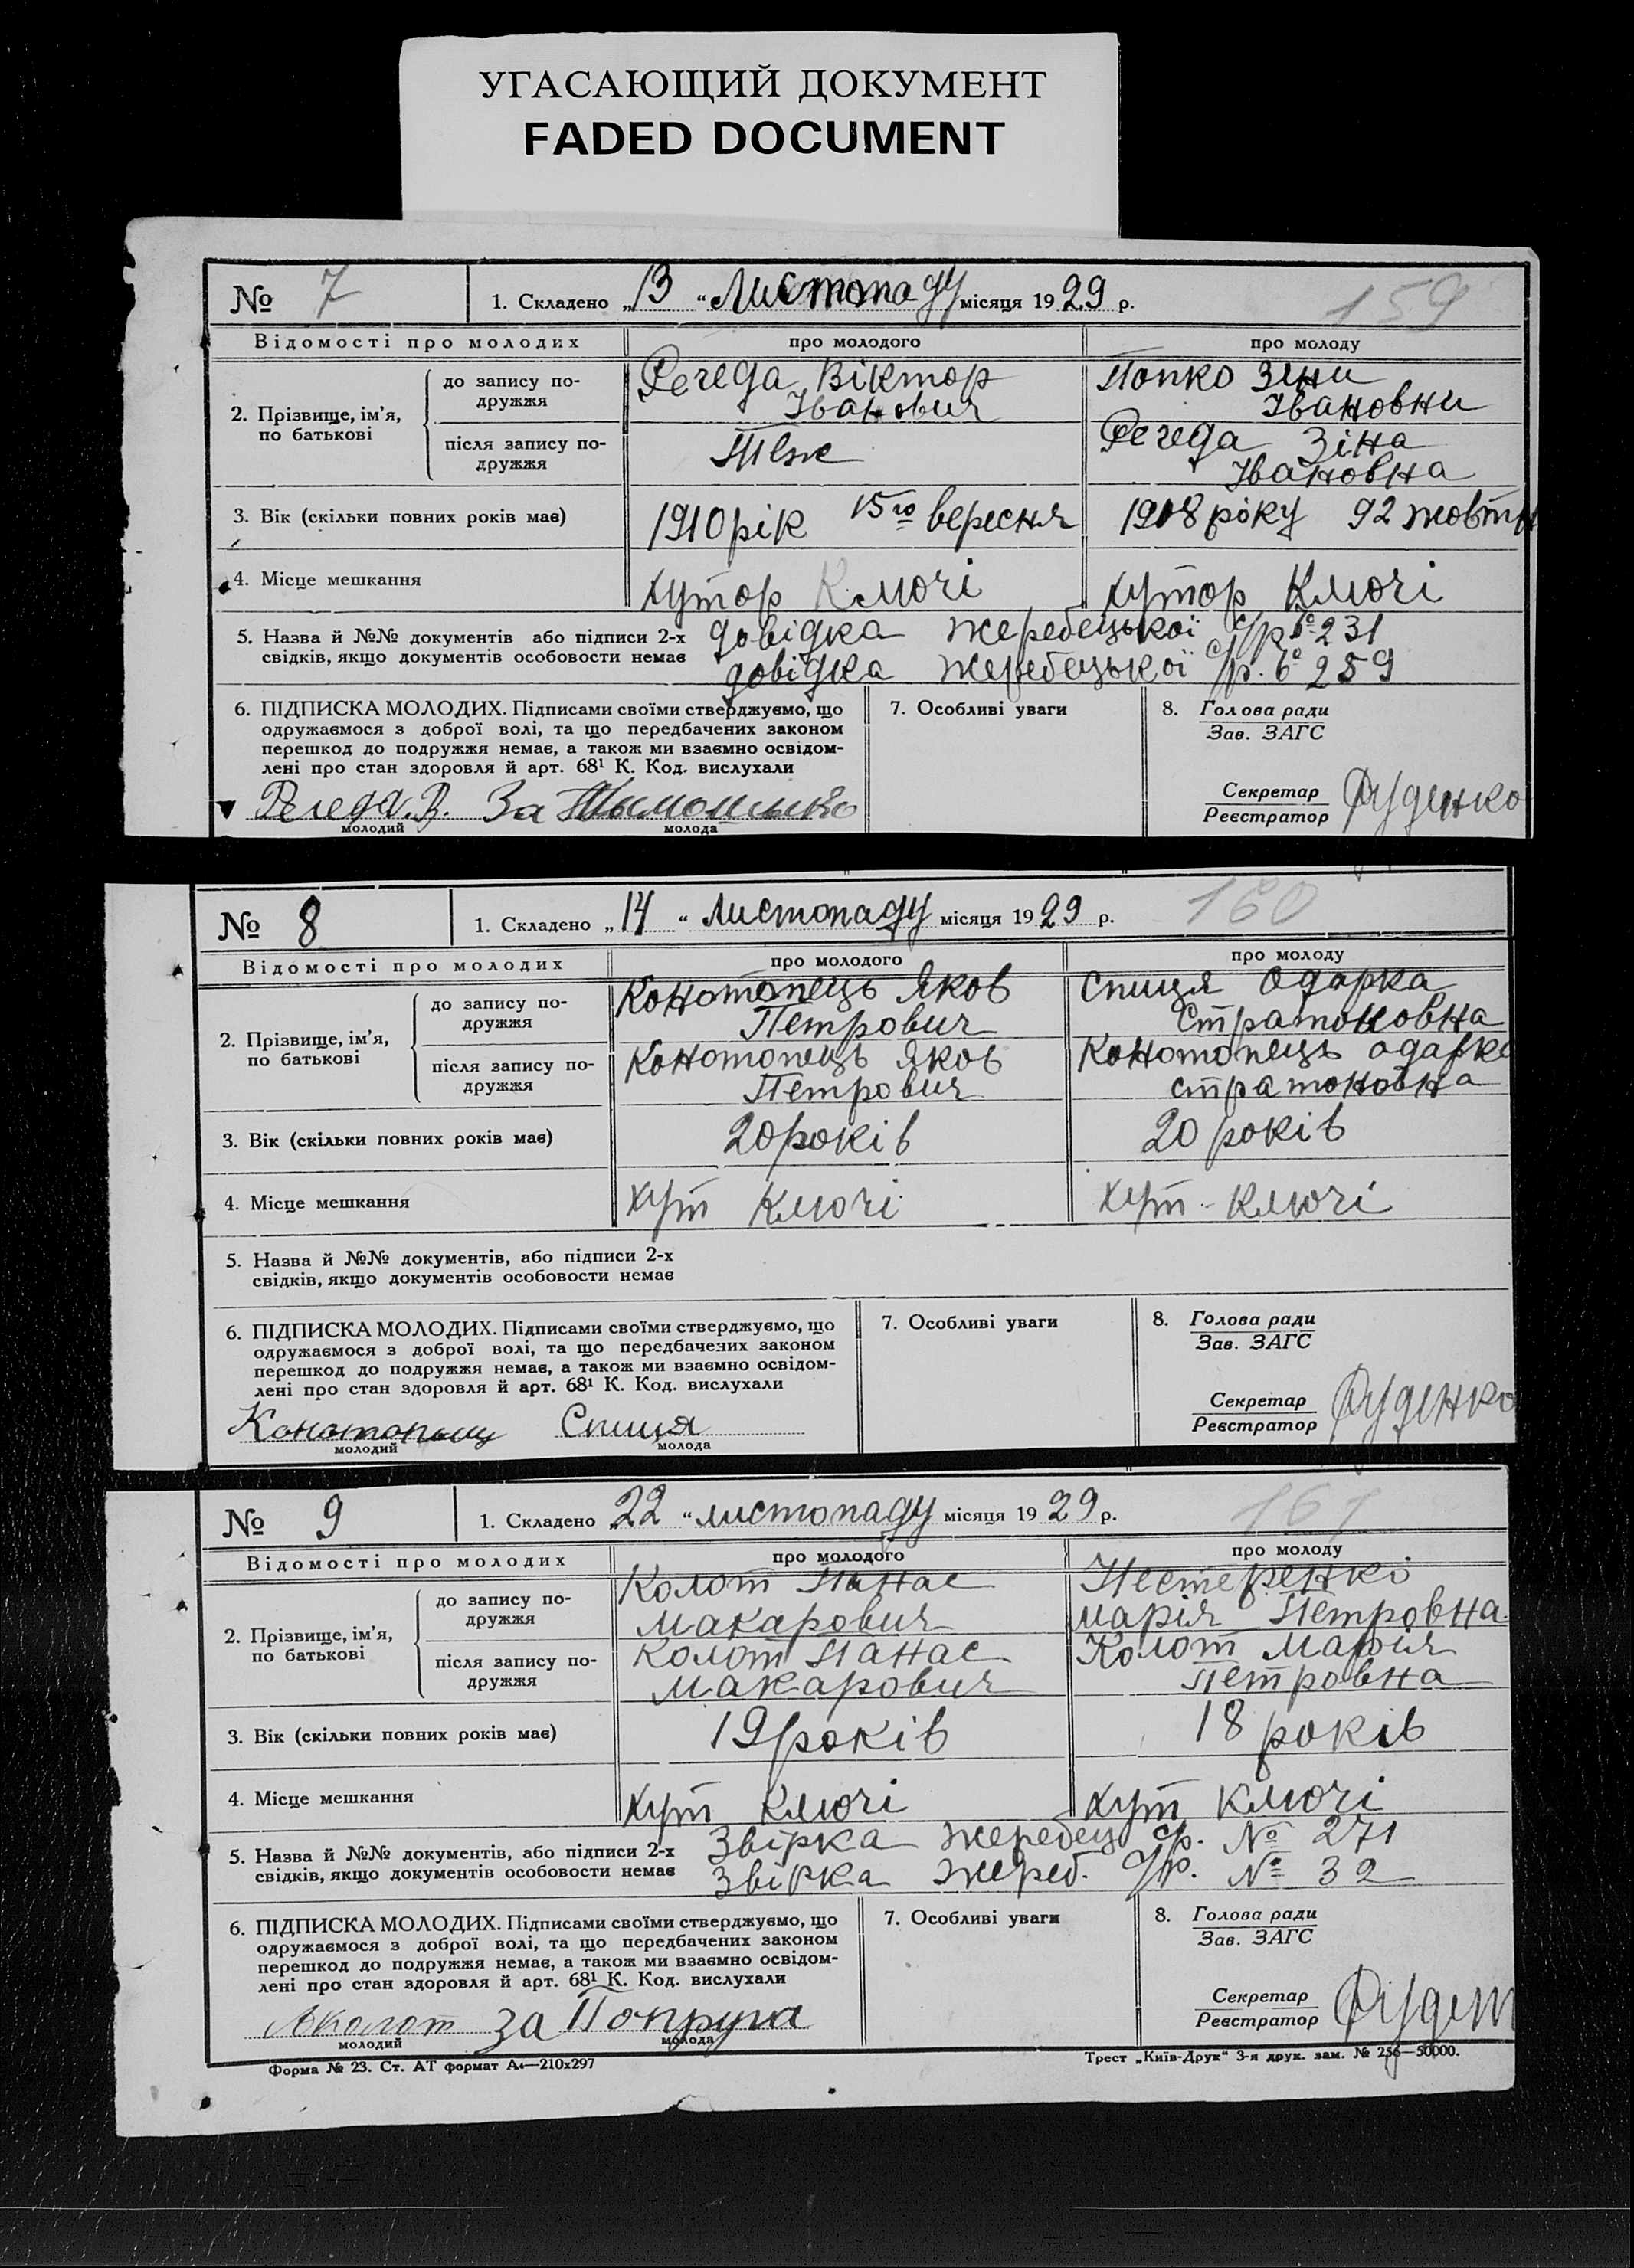 УГАСАЮЩИЙ ДОКУМЕНТ
FADED DOCUMENT
№ 7
1. Складено „13“ Листопаду місяця 1929 р.
159
Відомості про молодих
про молодого
про молоду
2. Прізвище, ім'я, по батькові
до запису подружжя
Регеда Віктор
Іванович
Попко Зини
Івановни
після запису подружжя
Теж
Регеда Зіна
Івановна
3. Вік (скільки повних років має)
1910 рік 15го вересня
1908 року 92 жовтн
4. Місце мешкання
хутор Ключі
хутор Ключі
5. Назва й №№ документів або підписи 2-х
свідків, якщо документів особовости немає
довідка Жеребецької с/р № 231
довідка Жеребецької с/р. № 259
6. ПІДПИСКА МОЛОДИХ. Підписами своїми стверджуємо, що
одружаємося з доброї волі, та що передбачених законом
перешкод до подружжя немає, а також ми взаємно освідом-
лені про стан здоровля й арт. 68¹ К. Код. вислухали
Регеда. В. За
молодий
молода
7. Особливі уваги
8. Голова ради
Зав. ЗАГС
Секретар
Реєстратор
Руденко
№ 8
1. Складено „14“ листопаду місяця 1929 р.
160
Відомості про молодих
про молодого
про молоду
2. Прізвище, ім'я, по батькові
до запису подружжя
Конотопець Яков
Петрович
Спиця Одарка
Стратоновна
після запису подружжя
Конотопець Яков
Петрович
Конотопець Одарка
Стратоновна
3. Вік (скільки повних років має)
20 років
20 років
4. Місце мешкання
хут Ключі
хут Ключі
5. Назва й №№ документів, або підписи 2-х
свідків, якщо документів особовости немає
6. ПІДПИСКА МОЛОДИХ. Підписами своїми стверджуємо, що
одружаємося з доброї волі, та що передбачених законом
перешкод до подружжя немає, а також ми взаємно освідом-
лені про стан здоровля й арт. 68¹ К. Код. вислухали
Конотопец Спиця
молодий
молода
7. Особливі уваги
8. Голова ради
Зав. ЗАГС
Секретар
Реєстратор
Руденко
№ 9
1. Складено „22“ листопаду місяця 1929 р.
161
Відомості про молодих
про молодого
про молоду
2. Прізвище, ім'я, по батькові
до запису подружжя
Колот Панас
Макарович
Нестеренко
Марія Петровна
після запису подружжя
Колот Панас
Макарович
Колот Марія
Петровна
3. Вік (скільки повних років має)
19 років
18 років
4. Місце мешкання
хут Ключі
хут Ключі
5. Назва й №№ документів, або підписи 2-х
свідків, якщо документів особовости немає
Звірка жеребец с/р. № 271
Звірка жереб. с/р. № 32
6. ПІДПИСКА МОЛОДИХ. Підписами своїми стверджуємо, що
одружаємося з доброї волі, та що передбачених законом
перешкод до подружжя немає, а також ми взаємно освідом-
лені про стан здоровля й арт. 68¹ К. Код. вислухали
Колот За Попруга
молодий
молода
7. Особливі уваги
8. Голова ради
Зав. ЗАГС
Секретар
Реєстратор
Руден
Форма № 23. Ст. АТ формат А₄—210x297
Трест „Київ-Друк“ 3-я друк. зам. № 256—50000.